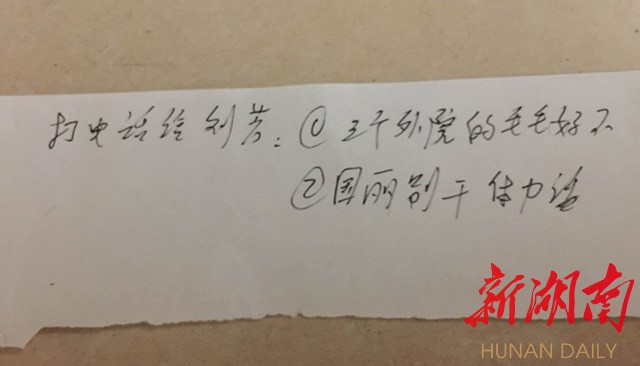 打电话给刘芳：①三个外院的毛毛好不
②国丽别干体力活
新湖南
HUNAN DAILY